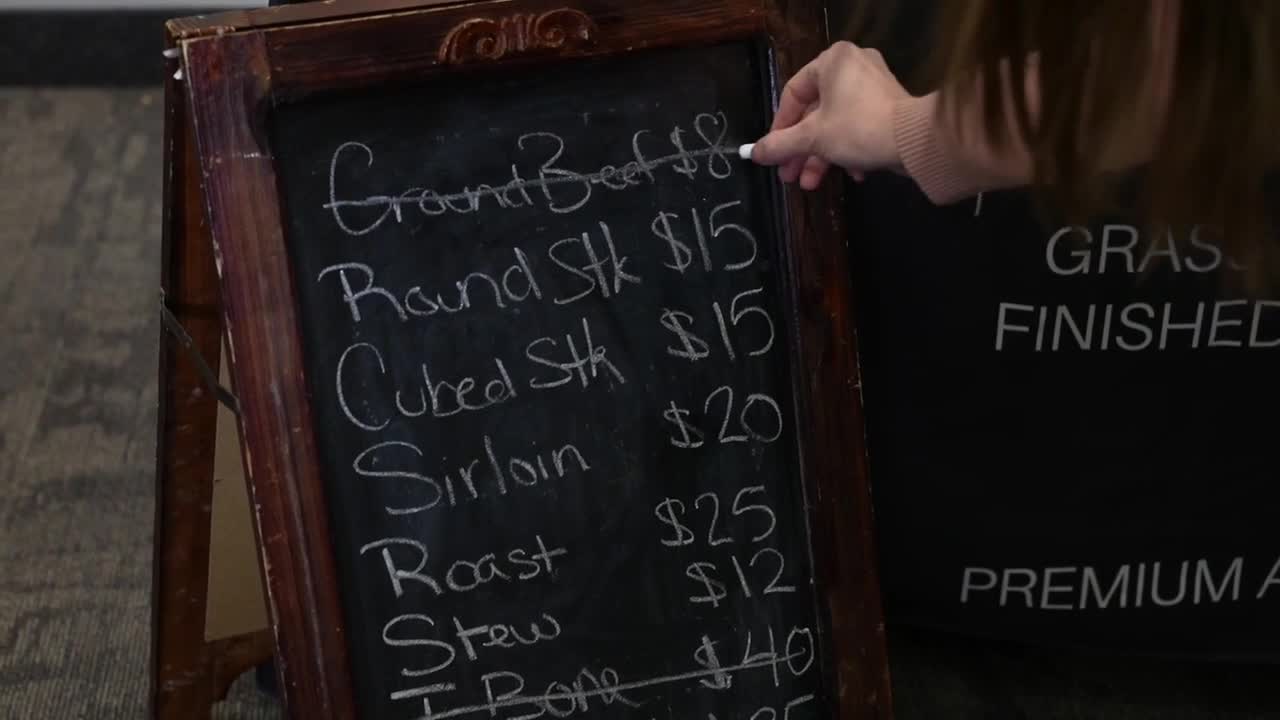 Ground Beef $8
Round Stk $15
Cubed Stk $15
Sirloin $20
Roast $25
Stew $12
T-Bone $40
GRASS
FINISHED
PREMIUM A